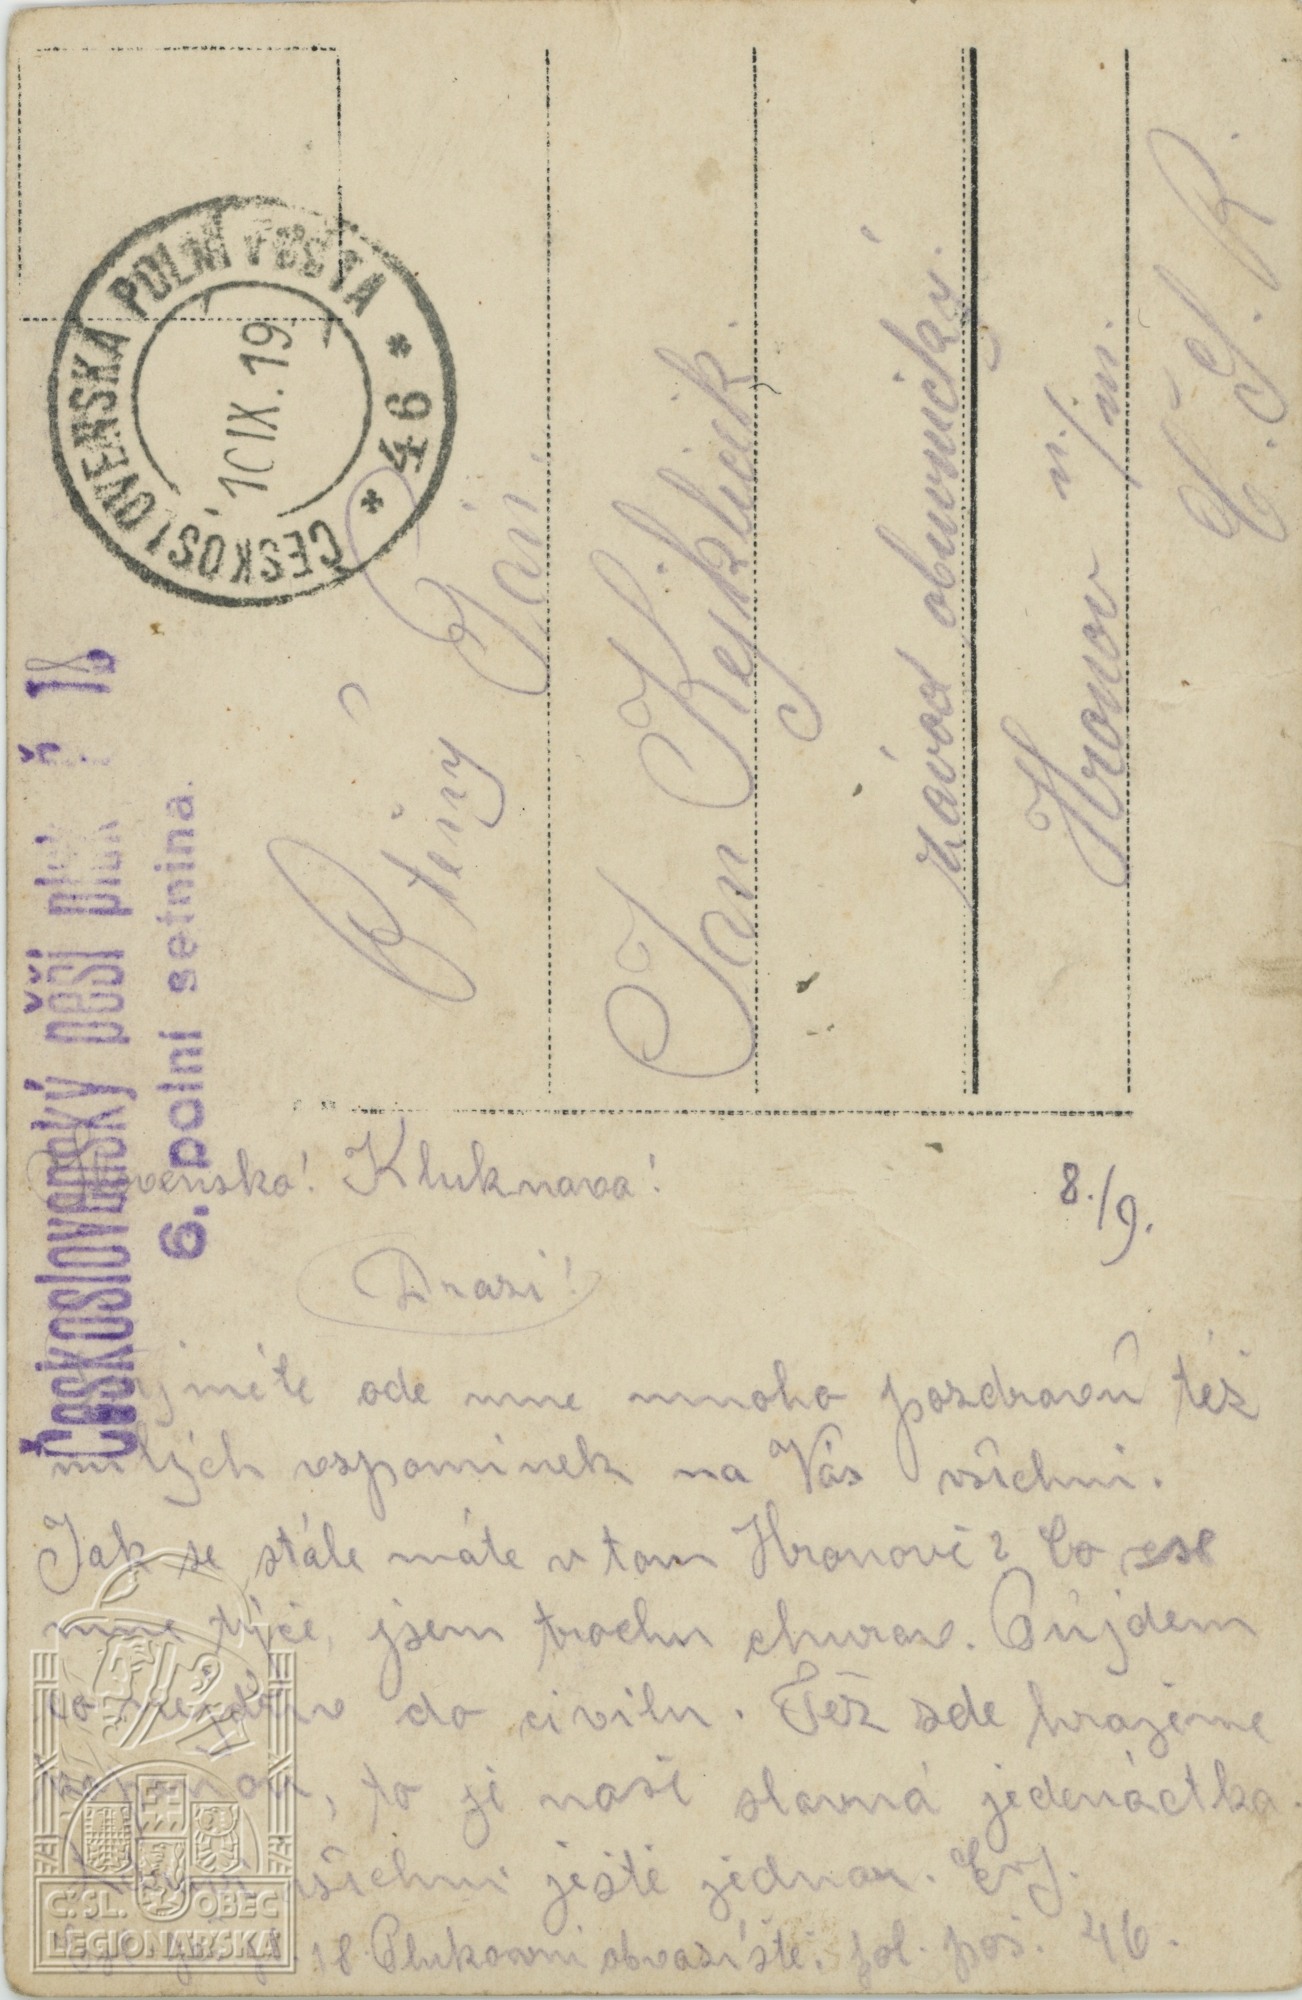 ČESKOSLOVENSKÁ POLNÍ POŠTA
* 46 *
IX. 19
Československý pěší pluk č 18
6. polní setnina.
Ctěný Pán
Jan Kejklíček
závod obuvnický.
Hronov n./m.
Č. S. R.
Slovensko! Kluknava!
8./9.
Drazí!
ode mne mnoho pozdravů též
milých vzpomínek na Vás všichni.
Jak se stále máte v tom Hronově? Co se
mne týče, jsem trochu churav. Půjdem
co nejdřív do civilu. Též zde hrajeme
to je naší slavná jedenáctka.
všichni ještě jednou.
18 Plukovní obvaziště. pol. poš. 46.
Č. SL. OBEC
LEGIONÁŘSKÁ